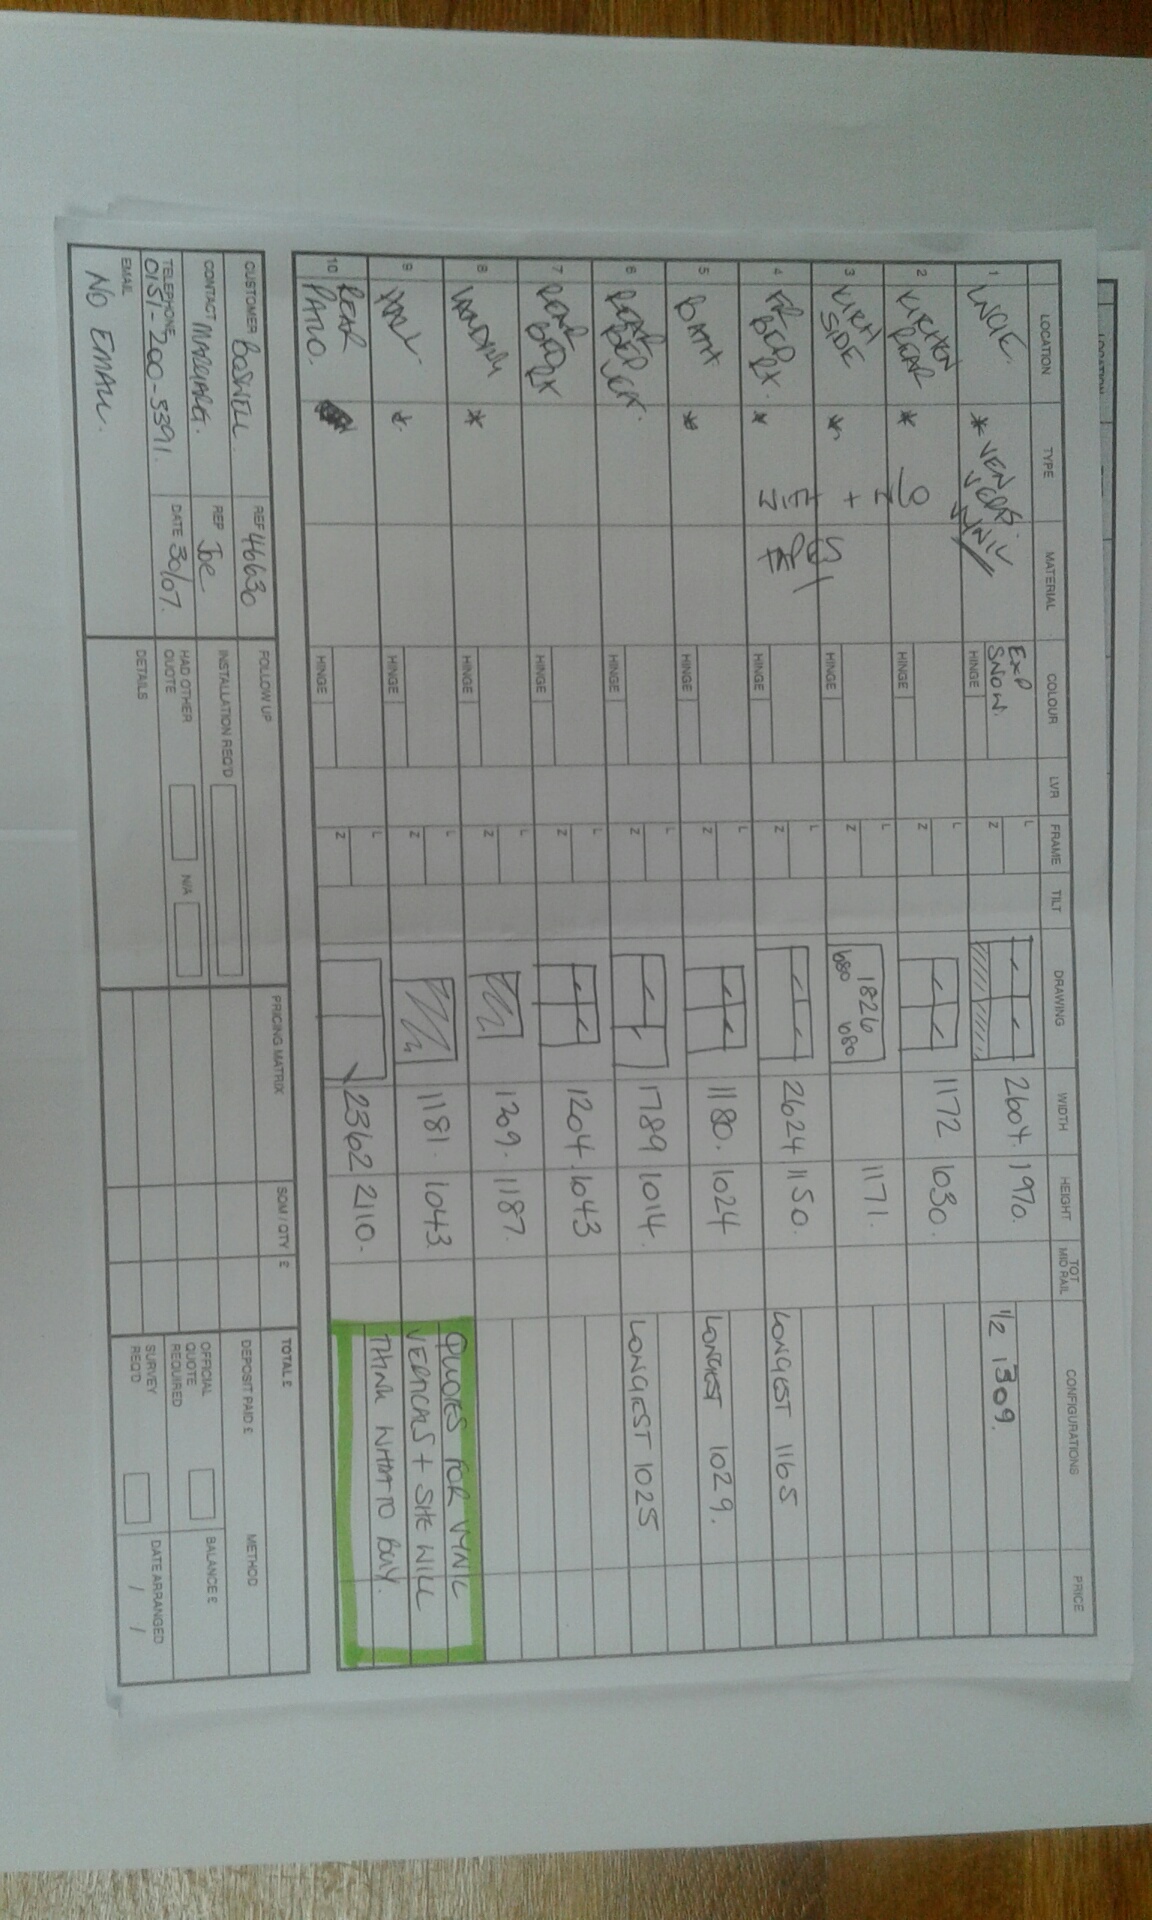 LOCATION TYPE MATERIAL COLOUR LVR FRAME TILT DRAWING WIDTH HEIGHT TOT MID RAIL CONFIGURATIONS PRICE
1 * VEN VERTS VYNIL EXP SNOW. HINGE L Z 2604. 1970. 1/2 1309.
2 KITCHEN REAR * HINGE L Z 1172 1030.
3 KITCH SIDE * + HINGE L Z 680 1826 680 1171.
4 FR BED * HINGE L Z 2624 1150. LONGEST 1165
5 BATH * HINGE L Z 1180. 1024 LONGEST 1029.
6 REAR BED HINGE L Z 1789 1014. LONGEST 1025
7 REAR BED HINGE L Z 1204. 1043
8 LANDING * HINGE L Z 1209. 1187.
9 HALL. * HINGE L Z 1181. 1043.
10 REAR PATIO. HINGE L Z 2362 2110.
QUOTES FOR VYNIL
VERTICALS + SITE WILL
THINK WHAT TO BUY.
CUSTOMER BOSWELL REF 46630
CONTACT MARGARG. REP JOE
TELEPHONE 0151-200-3391. DATE 30/07.
EMAIL
NO EMAIL.
FOLLOW UP
INSTALLATION REQ'D
HAD OTHER QUOTE N/A
DETAILS
PRICING MATRIX SQM / QTY £
TOTAL £
DEPOSIT PAID £ METHOD
OFFICIAL QUOTE REQUIRED BALANCE £
SURVEY REQ'D DATE ARRANGED / /
LOCATION